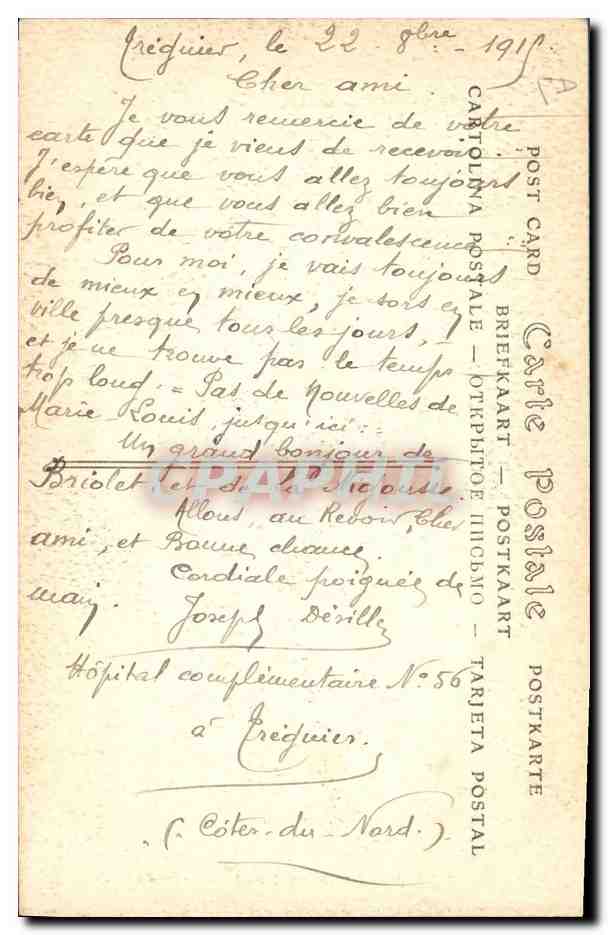 Tréguier, le 22 8bre 1915.
Cher ami.
Je vous remercie de votre
carte que je viens de recevoir.
J'espère que vous allez toujours
bien, et que vous allez bien
profiter de votre convalescence.
Pour moi, je vais toujours
de mieux en mieux, je sors en
ville presque tous les jours,
et je ne trouve pas le temps
trop long. = Pas de nouvelles de
Marie-Louis, jusqu'ici :
Un grand bonjour de
Briolet et de la
Allons, au Revoir, Cher
ami, et Bonne chance.
Cordiale poignée de
main. Joseph
Hôpital complémentaire No 56
à Tréguier.
(Côtes-du-Nord.)
A
CARTOLINA POSTALE — ОТКРЫТОЕ ПИСЬМО — TARJETA POSTAL
BRIEFKAART — POSTKAART
POST CARD Carte Postale POSTKARTE
CPAPHIL